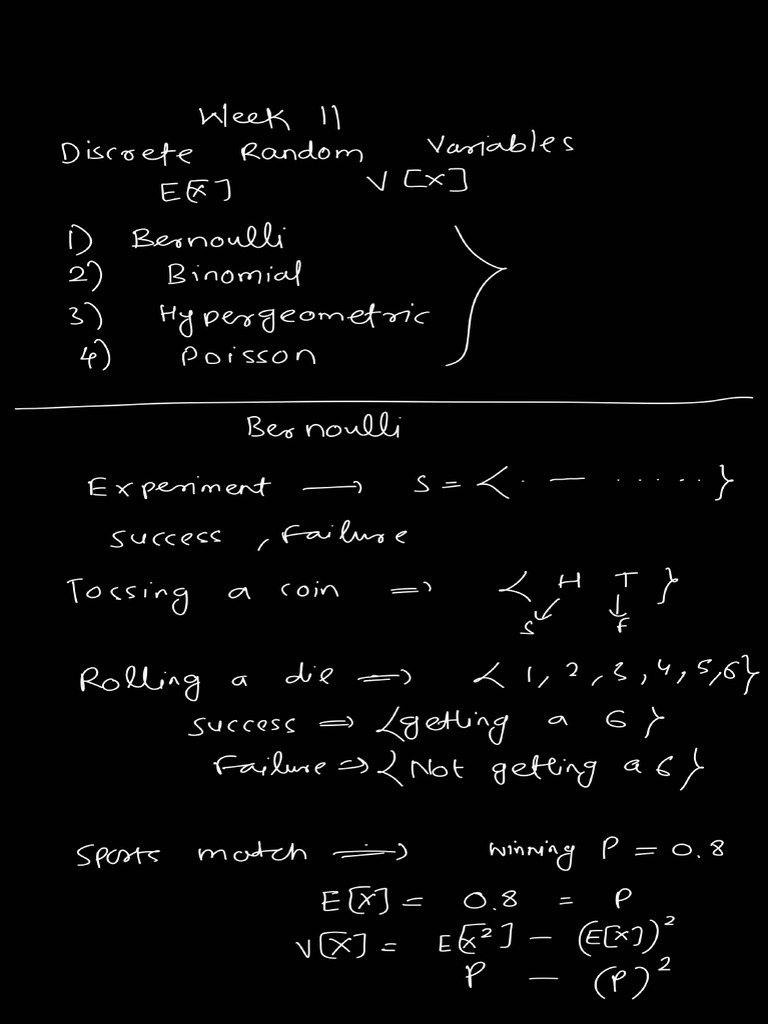 Week 11
Discrete Random Variables
E[X] V[X]
1) Bernoulli
2) Binomial
3) Hypergeometric
4) Poisson
Bernoulli
Experiment → S = { . — ..... }
success, Failure
Tossing a coin ⇒ { H T }
S F
Rolling a die ⇒ { 1, 2, 3, 4, 5, 6 }
success ⇒ {getting a 6}
Failure ⇒ {Not getting a 6}
Sports match ⇒ winning P = 0.8
E[X] = 0.8 = P
V[X] = E[X²] - (E[X])²
P - (P)²